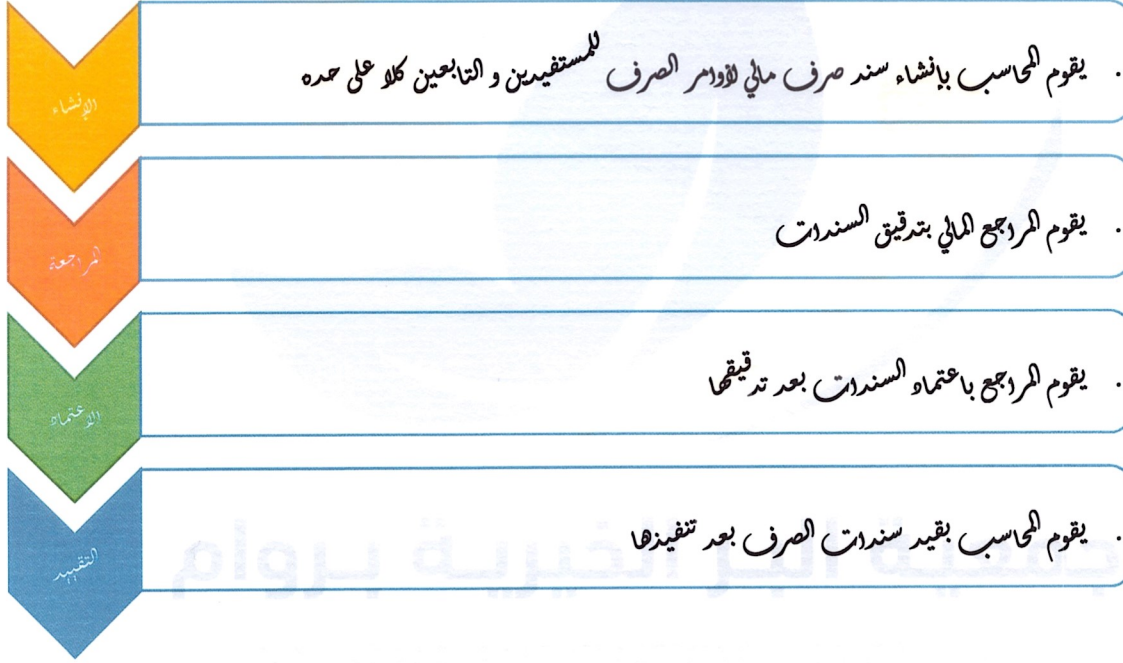 الإنشاء
. يقوم المحاسب بإنشاء سند صرف مالي لأوامر الصرف للمستفيدين و التابعين كلا على حده
المراجعة
. يقوم المراجع المالي بتدقيق السندات
الاعتماد
. يقوم المراجع باعتماد السندات بعد تدقيقها
التقييد
. يقوم المحاسب بقيد سندات الصرف بعد تنفيذها
جمعية البر الخيرية بروام